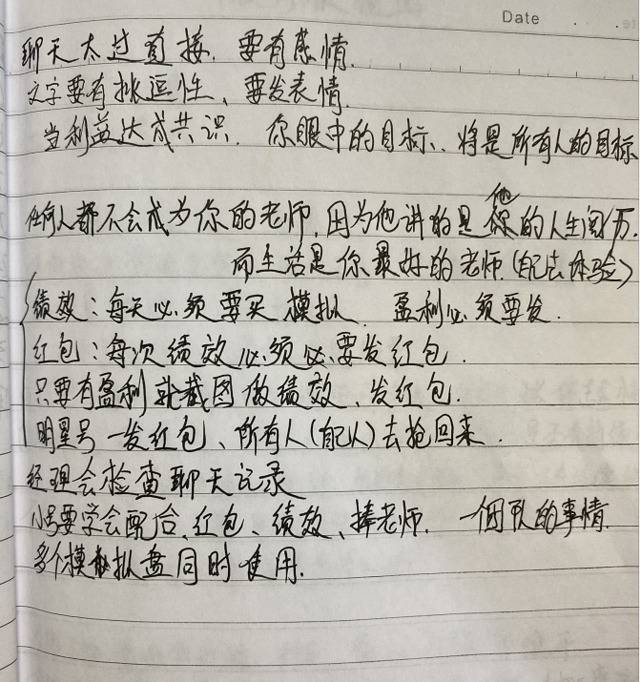 Date
聊天太过直接.要有感情.
文字要有挑逗性、要发表情.
当利益达成共识.你眼中的目标、将是所有人的目标
任何人都不会成为你的老师,因为他讲的是他的人生阅历.
而生活是你最好的老师(自己去体验)
绩效:每天必须要买模拟 盈利必须要发.
红包:每次绩效必须必要发红包.
只要有盈利就截图做绩效、发红包.
明星号一发红包、所有人(自己人)去抢回来.
经理会检查聊天记录
小号要学会配合、红包、绩效、捧老师. 一个团队的事情.
多个模拟盘同时使用.